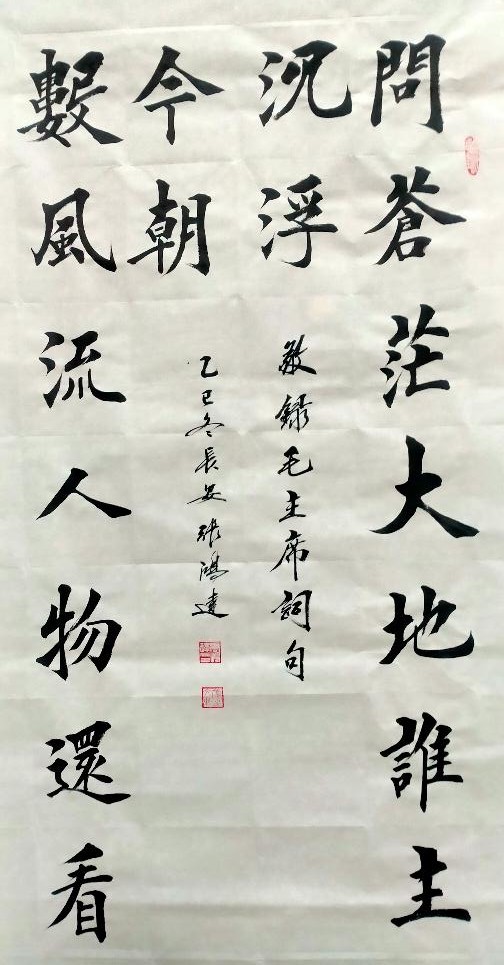 問蒼茫大地誰主
沉浮
數風流人物還看
今朝
敬錄毛主席詞句
乙巳冬長安張鴻達